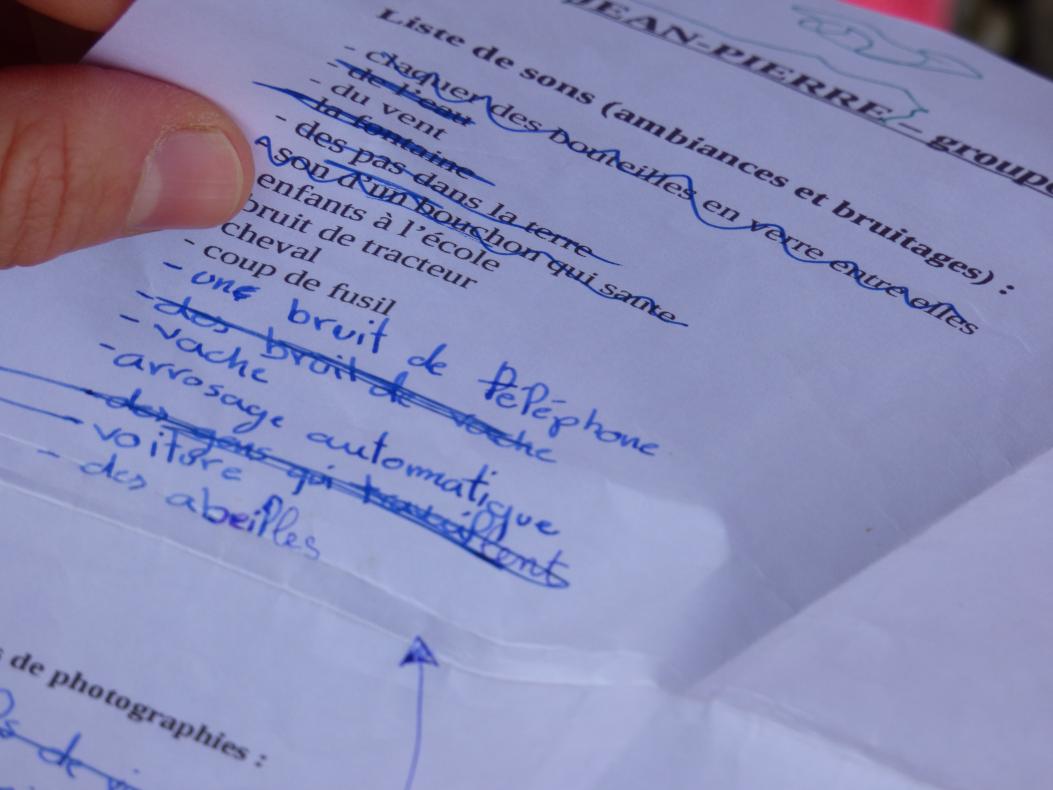 JEAN-PIERRE – groupe
Liste de sons (ambiances et bruitages) :
- claquer des bouteilles en verre entre elles
- de l'eau
- du vent
- la fontaine
- des pas dans la terre
son d'un bouchon qui saute
enfants à l'école
bruit de tracteur
cheval
- coup de fusil
- une bruit de téléphone
- des bruit de vache
- vache
- arrosage automatique
- des gens qui travaillent
- voiture
- des abeilles
de photographies :
de